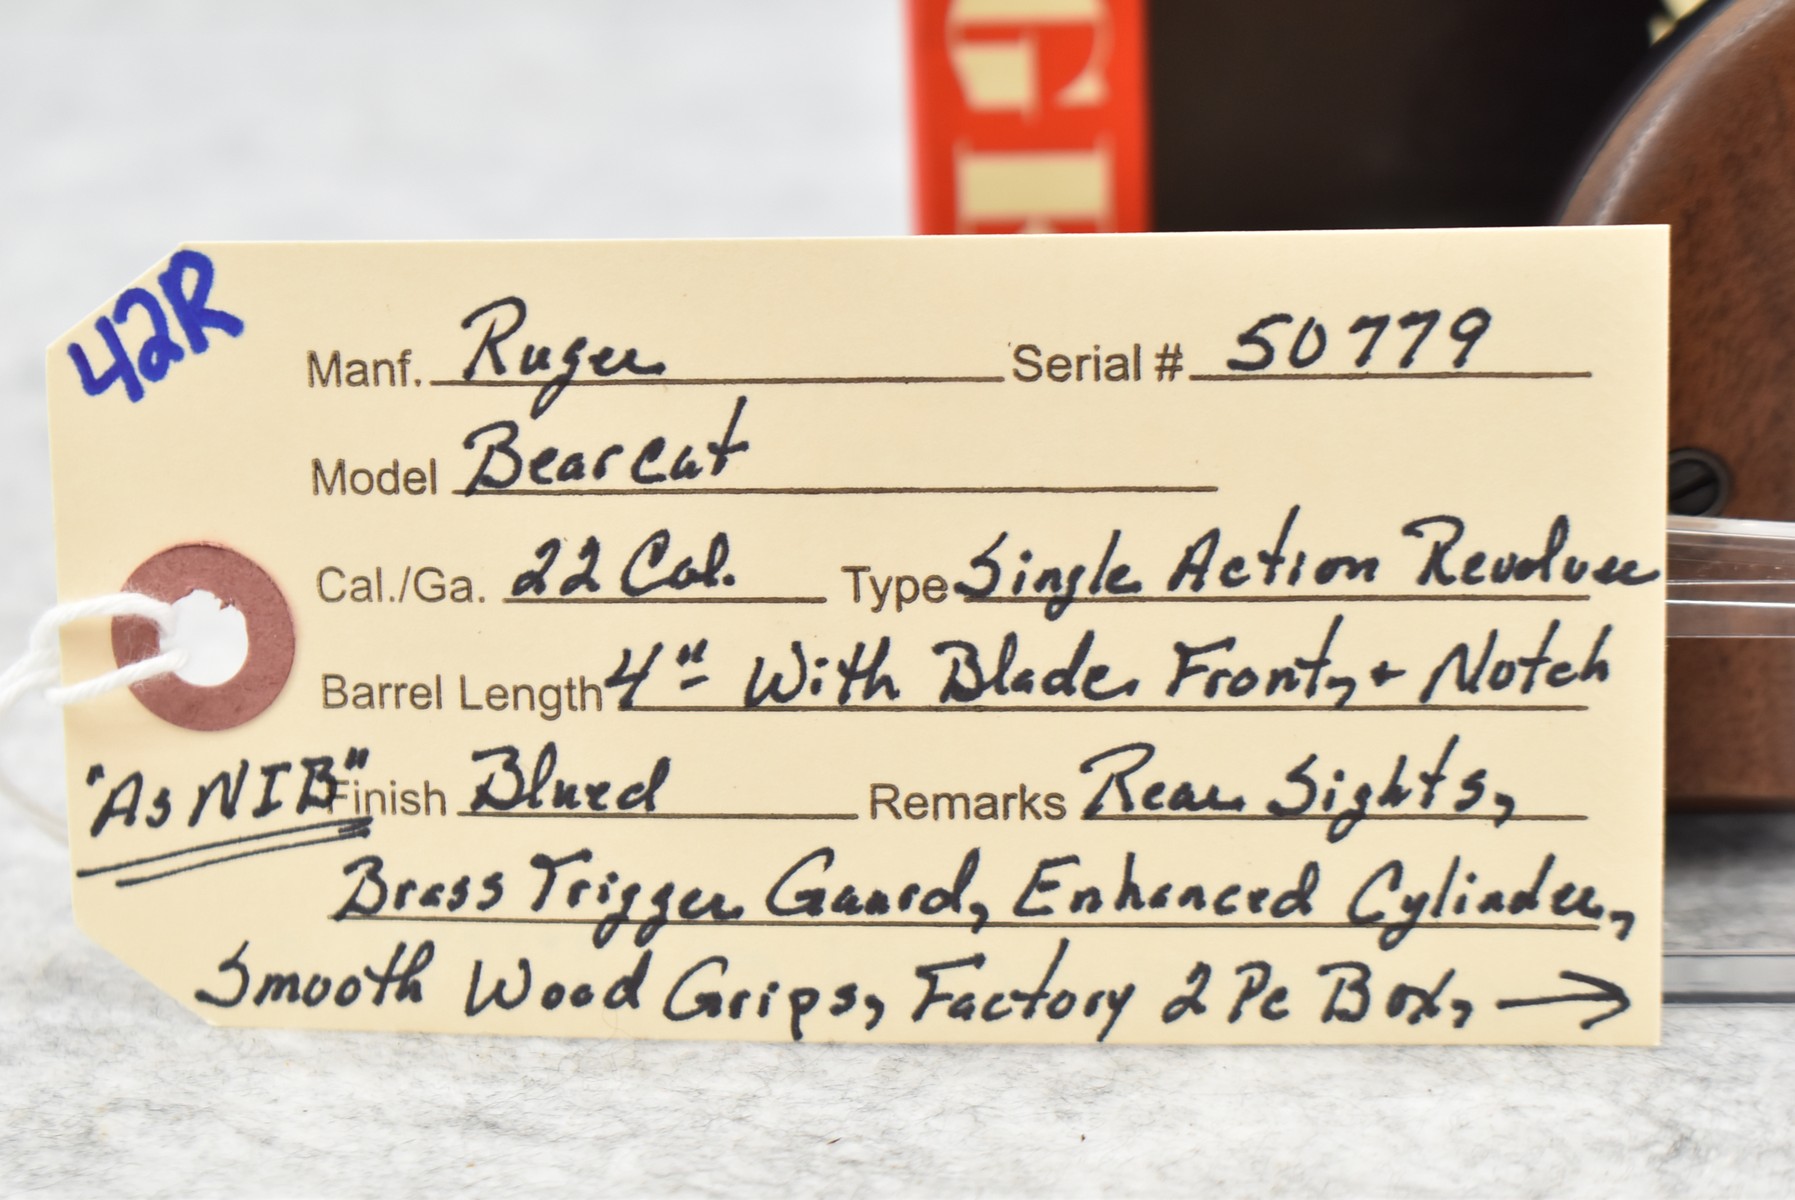 GE
42R
Manf. Ruger Serial # 50779
Model Bearcat
Cal./Ga. 22 Cal. Type Single Action Revolver
Barrel Length 4" With Blade Front, + Notch
"As NIB" Finish Blued Remarks Rear Sights,
Brass Trigger Guard, Enhanced Cylinder,
Smooth Wood Grips, Factory 2 Pc Box, →